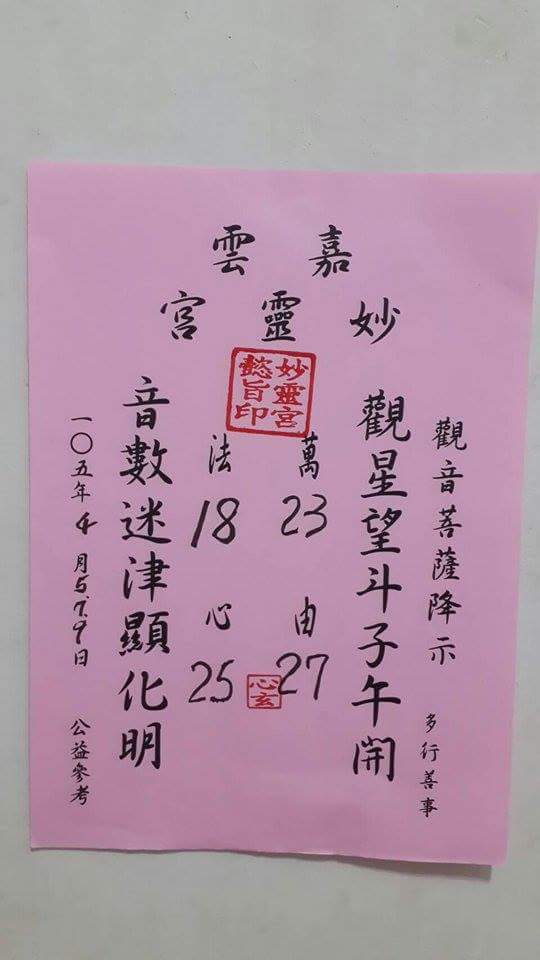 嘉雲
妙靈宮
妙靈宮
懿旨印
觀音菩薩降示
多行善事
觀星望斗子午開
萬 23 由 27
法 18 心 25
心玄
音數迷津顯化明
一〇五年4月5.7.9日
公益參考